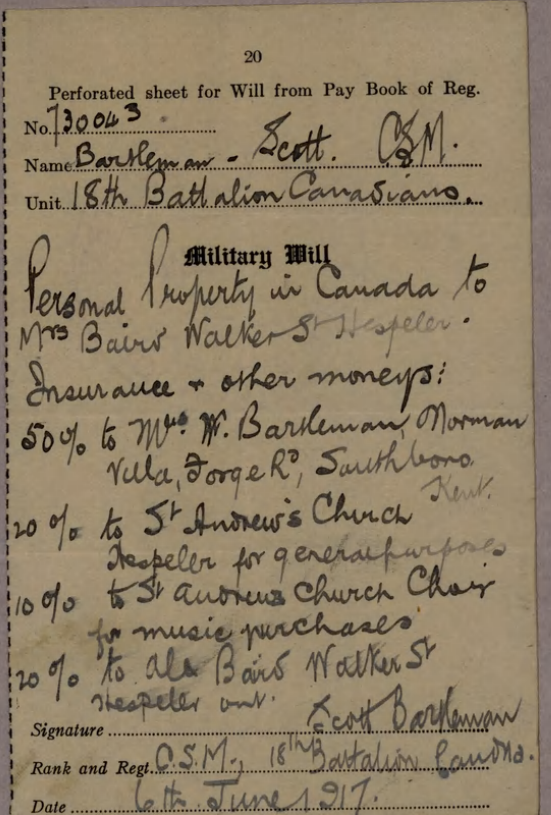 20
Perforated sheet for Will from Pay Book of Reg.
No. 730043
Name Bartleman - Scott. CSM.
Unit 18th Battalion Canadians.
Military Will
Personal Property in Canada to
Mrs Baird Walker St Hespeler.
Insurance + other moneys:
50% to Mrs. W. Bartleman, Norman
Villa, Forge Rd, Southboro
Kent.
20% to St Andrew's Church
Hespeler for general purposes
10% to St Andrews Church Choir
for music purchases
20% to Alex Baird Walker St
Hespeler ont.
Signature Scott Bartleman
Rank and Regt. C.S.M., 18th Battalion Candns.
Date 6th June 1917.